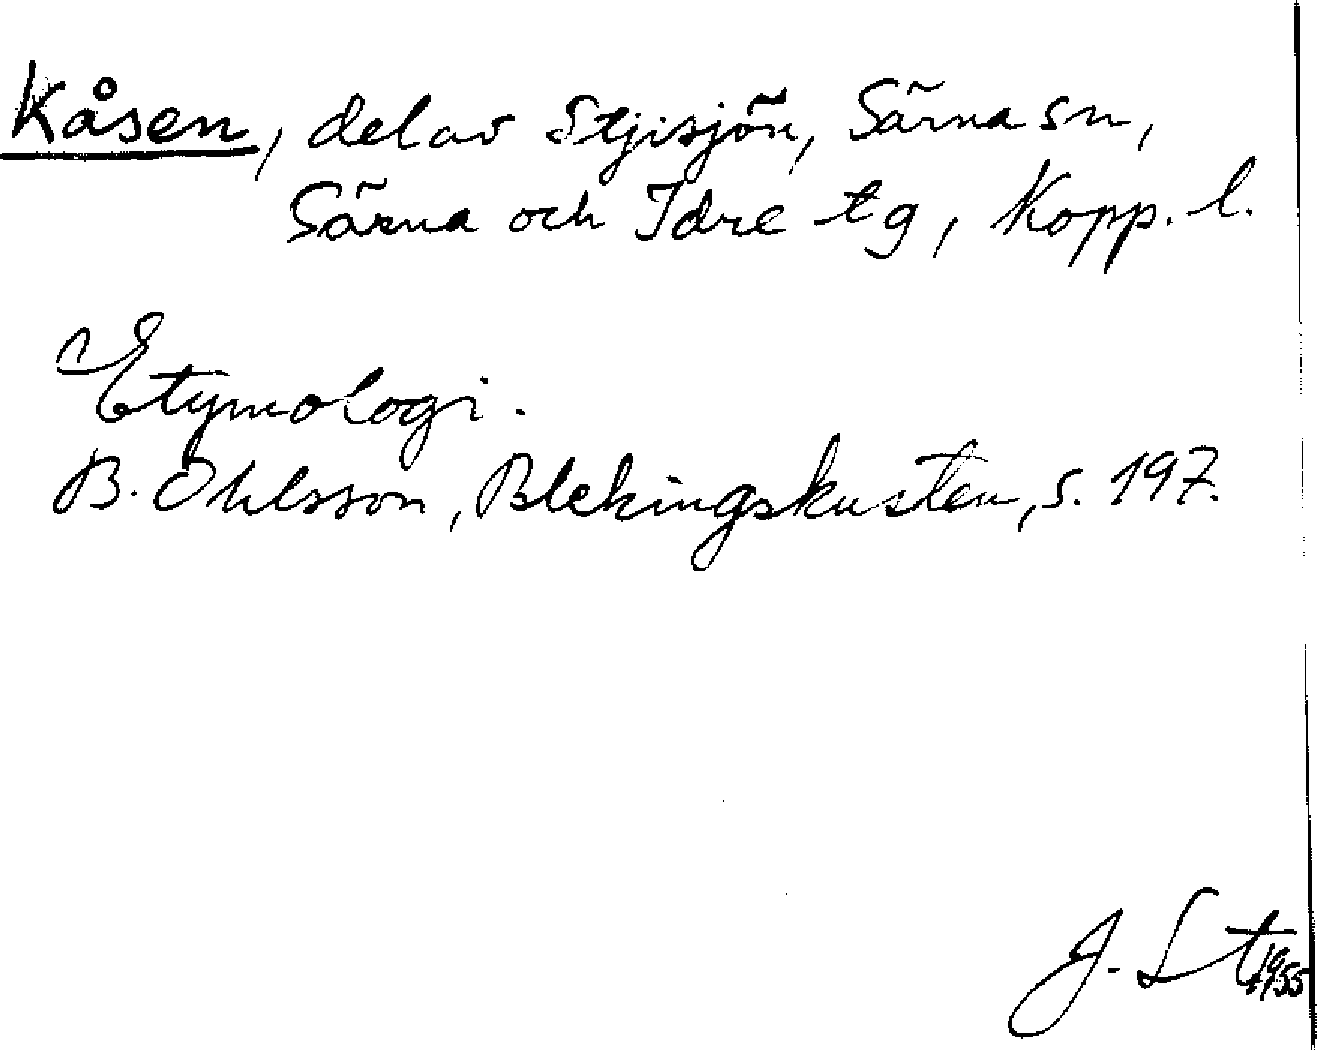 Kåsen, del av Stjisjön, Särna sn,
Särna och Idre tg, Kopp. l.
Etymologi.
B. Ohlsson, Blekingskusten, s. 197.
J. Lt 1955